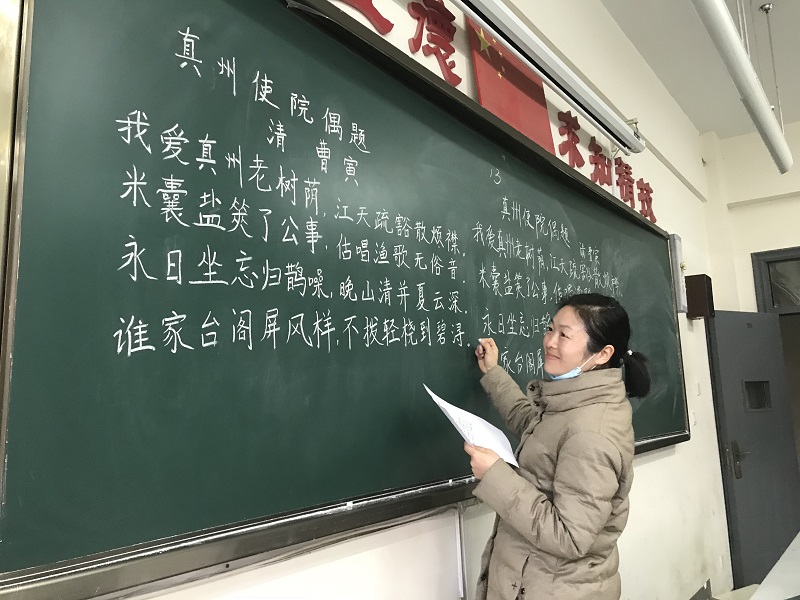 德 求知精技
真州使院偶题
清 曹寅
我爱真州老树荫,江天疏豁散烦襟。
米囊盐筴了公事,估唱渔歌无俗音。
永日坐忘归鹊噪,晚山清并夏云深。
谁家台阁屏风样,不拨轻桡到碧浔。
13
真州使院偶题
清曹寅
我爱真州老树荫,江天疏豁散烦襟
米囊盐筴了公事,估唱
永日坐忘归鹊
家台阁屏